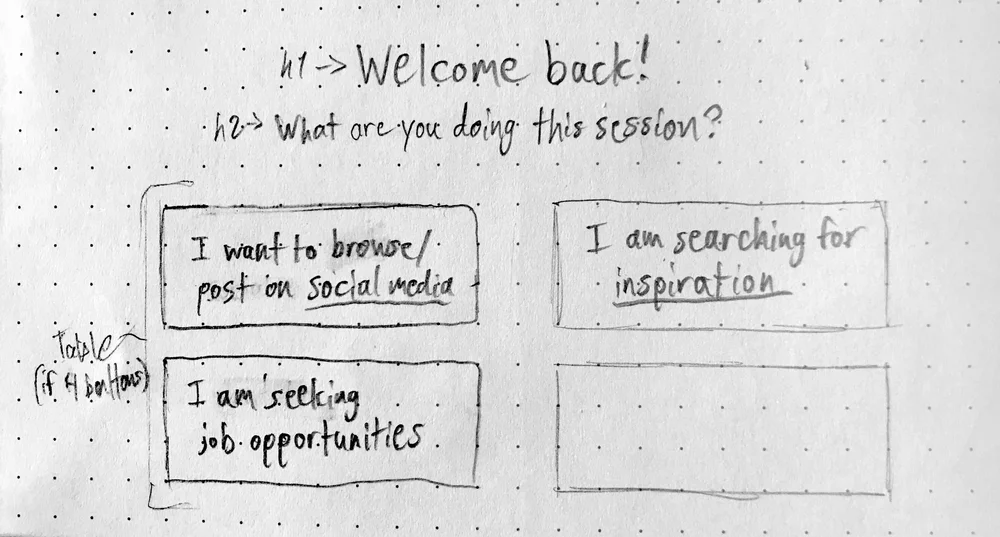 h1-> Welcome back!
h2-> What are you doing this session?
I want to browse/
post on social media
I am searching for
inspiration
Table
(if 4 buttons)
I am seeking
job opportunities